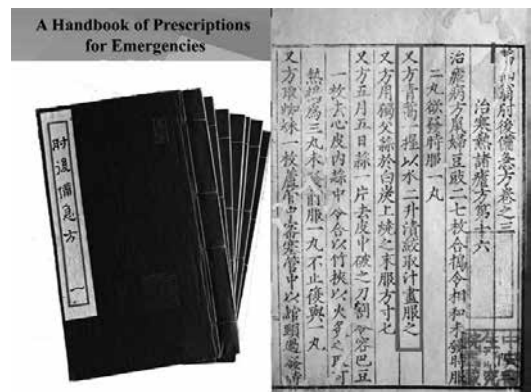 A Handbook of Prescriptions
for Emergencies
肘後備急方
一
肘後備急方卷之三
治寒熱諸瘧方第十六
治瘧病方鼠婦豆豉二七枚合搗令相和未發時服
二丸欲發時服一丸
又方青蒿一握以水二升漬絞取汁盡服之
又方用獨父蒜於白炭上燒之末服方寸匕
又方五月五日蒜一片去皮中破之刀割令容巴豆
一枚去心皮內蒜中令合以竹挾以火炙之取可
熱搗為三丸未發前服一丸不止復與一丸
又方取蜘蛛一枚蘆管中密塞管中以綰頸過發時